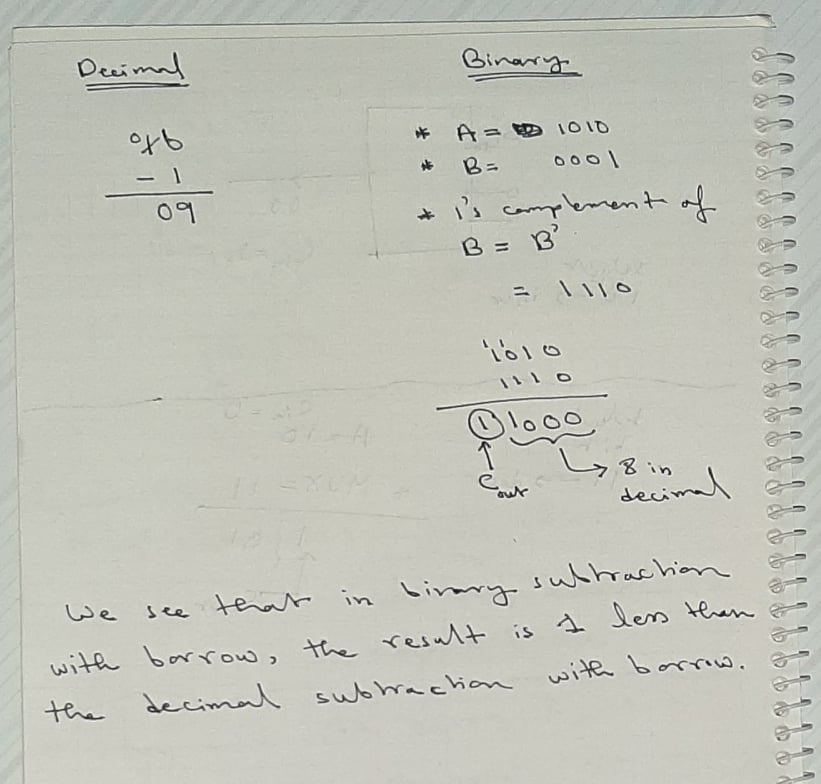 Decimal
0 1̸0
- 1
09
Binary
* A = 1010
* B = 0001
* 1's complement of
B = B'
= 1110
1 1
1010
1110
1 1000
Cout
8 in
decimal
We see that in binary subtraction
with borrow, the result is 1 less than
the decimal subtraction with borrow.